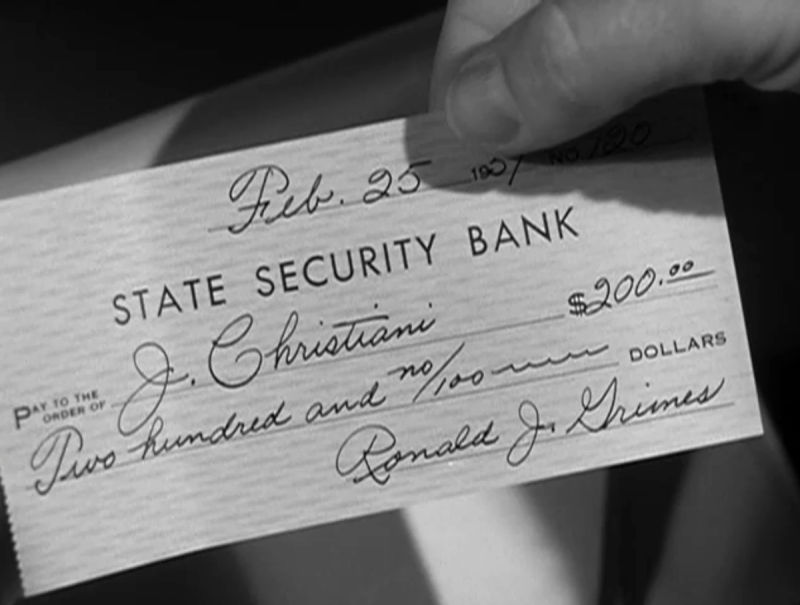 Feb. 25 1957 NO. 120
STATE SECURITY BANK
PAY TO THE ORDER OF J. Christiani $200.00
Two hundred and no/100 DOLLARS
Ronald J. Grimes